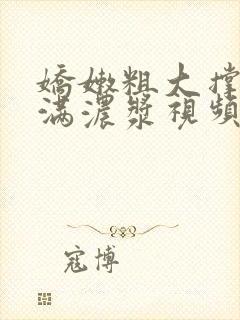 嬌嫩粗大撐
滿濃漿視頻
寇博